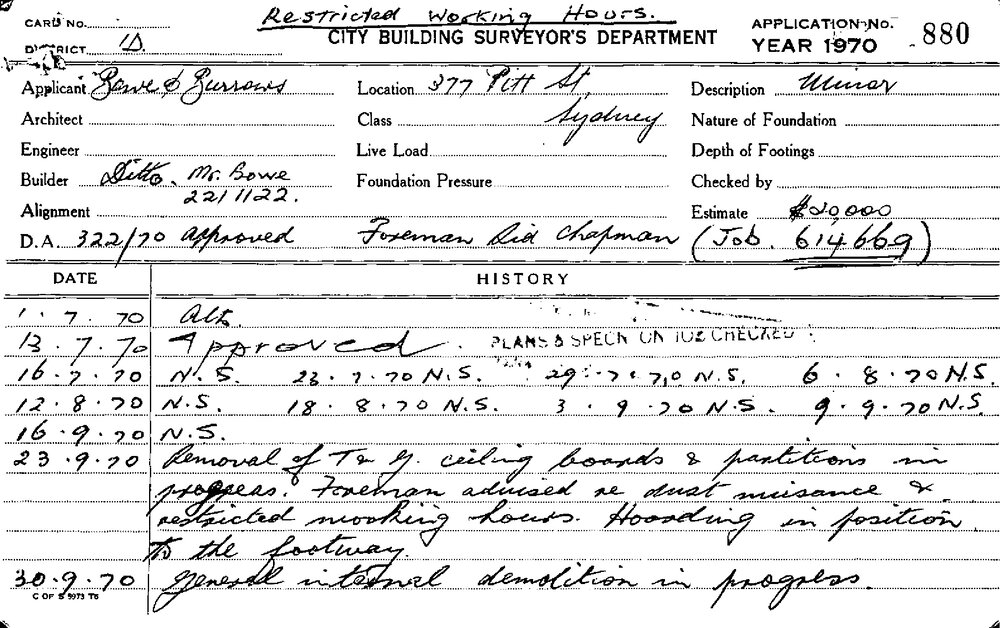 Restricted Working Hours.
CARD No.
CITY BUILDING SURVEYOR'S DEPARTMENT
APPLICATION No. 880
DISTRICT 1D.
YEAR 1970
Applicant Bowe & Burrows Location 377 Pitt St, Description Minor
Architect Class Sydney Nature of Foundation
Engineer Live Load Depth of Footings
Builder Ditto. Mr. Bowe Foundation Pressure Checked by
221122.
Alignment Estimate $20,000
D.A. 322/70 approved Foreman Sid Chapman (Job. 614669)
DATE HISTORY
1.7.70 Alts.
13.7.70 Approved. PLANS & SPECN ON JOB CHECKED
16.7.70 N.S. 23.7.70 N.S. 29.7.70 N.S. 6.8.70 N.S.
12.8.70 N.S. 18.8.70 N.S. 3.9.70 N.S. 9.9.70 N.S.
16.9.70 N.S.
23.9.70 Removal of T & G. ceiling boards & partitions in
progress. Foreman advised re dust nuisance &
restricted working hours. Hoarding in position
to the footway.
30.9.70 General internal demolition in progress.
C OF S 5973 T6